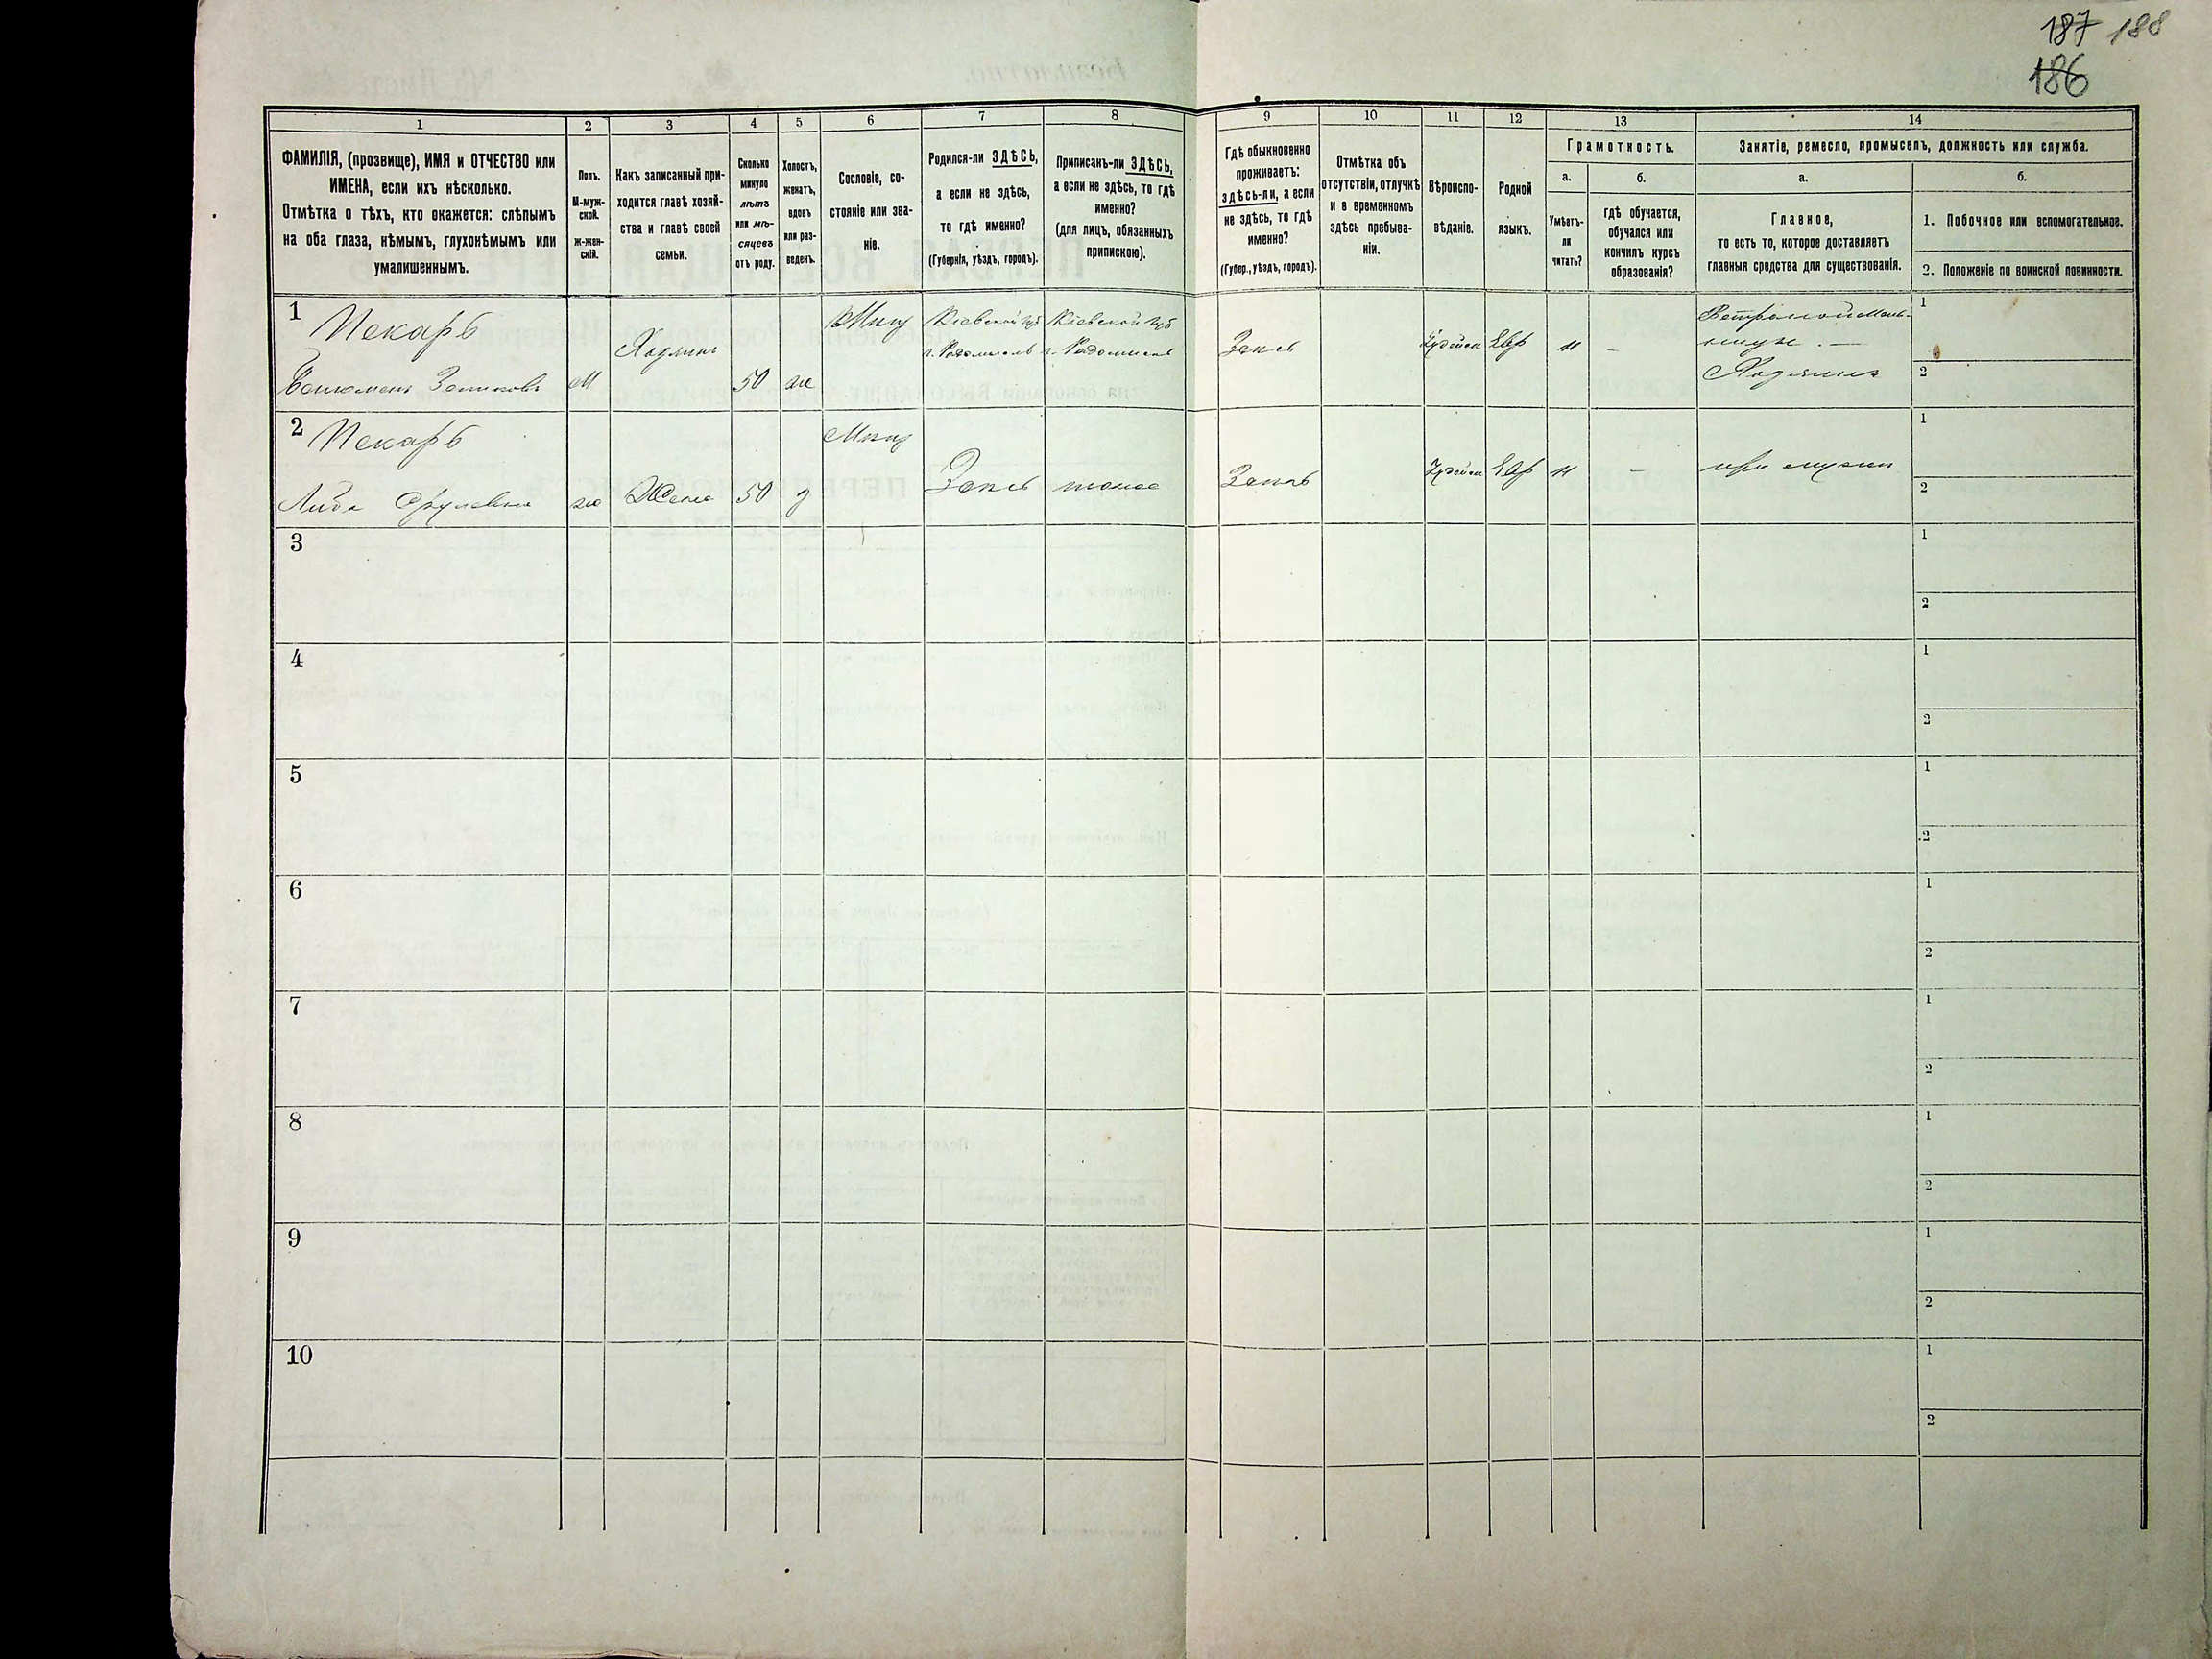 187 188
186
1
2
3
4
5
6
7
8
9
10
11
12
13
14
ФАМИЛІЯ, (прозвище), ИМЯ и ОТЧЕСТВО или
ИМЕНА, если ихъ нѣсколько.
Отмѣтка о тѣхъ, кто окажется: слѣпымъ
на оба глаза, нѣмымъ, глухонѣмымъ или
умалишеннымъ.
Полъ.
М-муж-
ской.
ж-жен-
скій.
Какъ записанный при-
ходится главѣ хозяй-
ства и главѣ своей
семьи.
Сколько
минуло
лѣтъ
или мѣ-
сяцевъ
отъ роду.
Холостъ,
женатъ,
вдовъ
или раз-
веденъ.
Сословіе, со-
стояніе или зва-
ніе.
Родился-ли ЗДѢСЬ,
а если не здѣсь,
то гдѣ именно?
(Губернія, уѣздъ, городъ).
Приписанъ-ли ЗДѢСЬ,
а если не здѣсь, то гдѣ
именно?
(для лицъ, обязанныхъ
припискою).
Гдѣ обыкновенно
проживаетъ:
здѣсь-ли, а если
не здѣсь, то гдѣ
именно?
(Губер., уѣздъ, городъ).
Отмѣтка объ
отсутствіи, отлучкѣ
и в временномъ
здѣсь пребыва-
ніи.
Вѣроиспо-
вѣданіе.
Родной
языкъ.
Грамотность.
а.
Умѣетъ-
ли
читать?
б.
гдѣ обучается,
обучался или
кончилъ курсъ
образованія?
Занятіе, ремесло, промыселъ, должность или служба.
а.
Главное,
то есть то, которое доставляетъ
главныя средства для существованія.
б.
1. Побочное или вспомогательное.
2. Положеніе по воинской повинности.
1
Пекарь
М
Хозяинъ
50
же
Мещ
Кіевской губ
г. Радомысль
Кіевской губ
г. Радомысль
Здесь
Іудейск
Евр
н
—
Хозяинъ
1
2
2
Пекарь
Жена
50
з
Мещ
Здесь
тоже
Здесь
Іудейск
Евр
н
—
при мужѣ
1
2
3
1
2
4
1
2
5
1
2
6
1
2
7
1
2
8
1
2
9
1
2
10
1
2